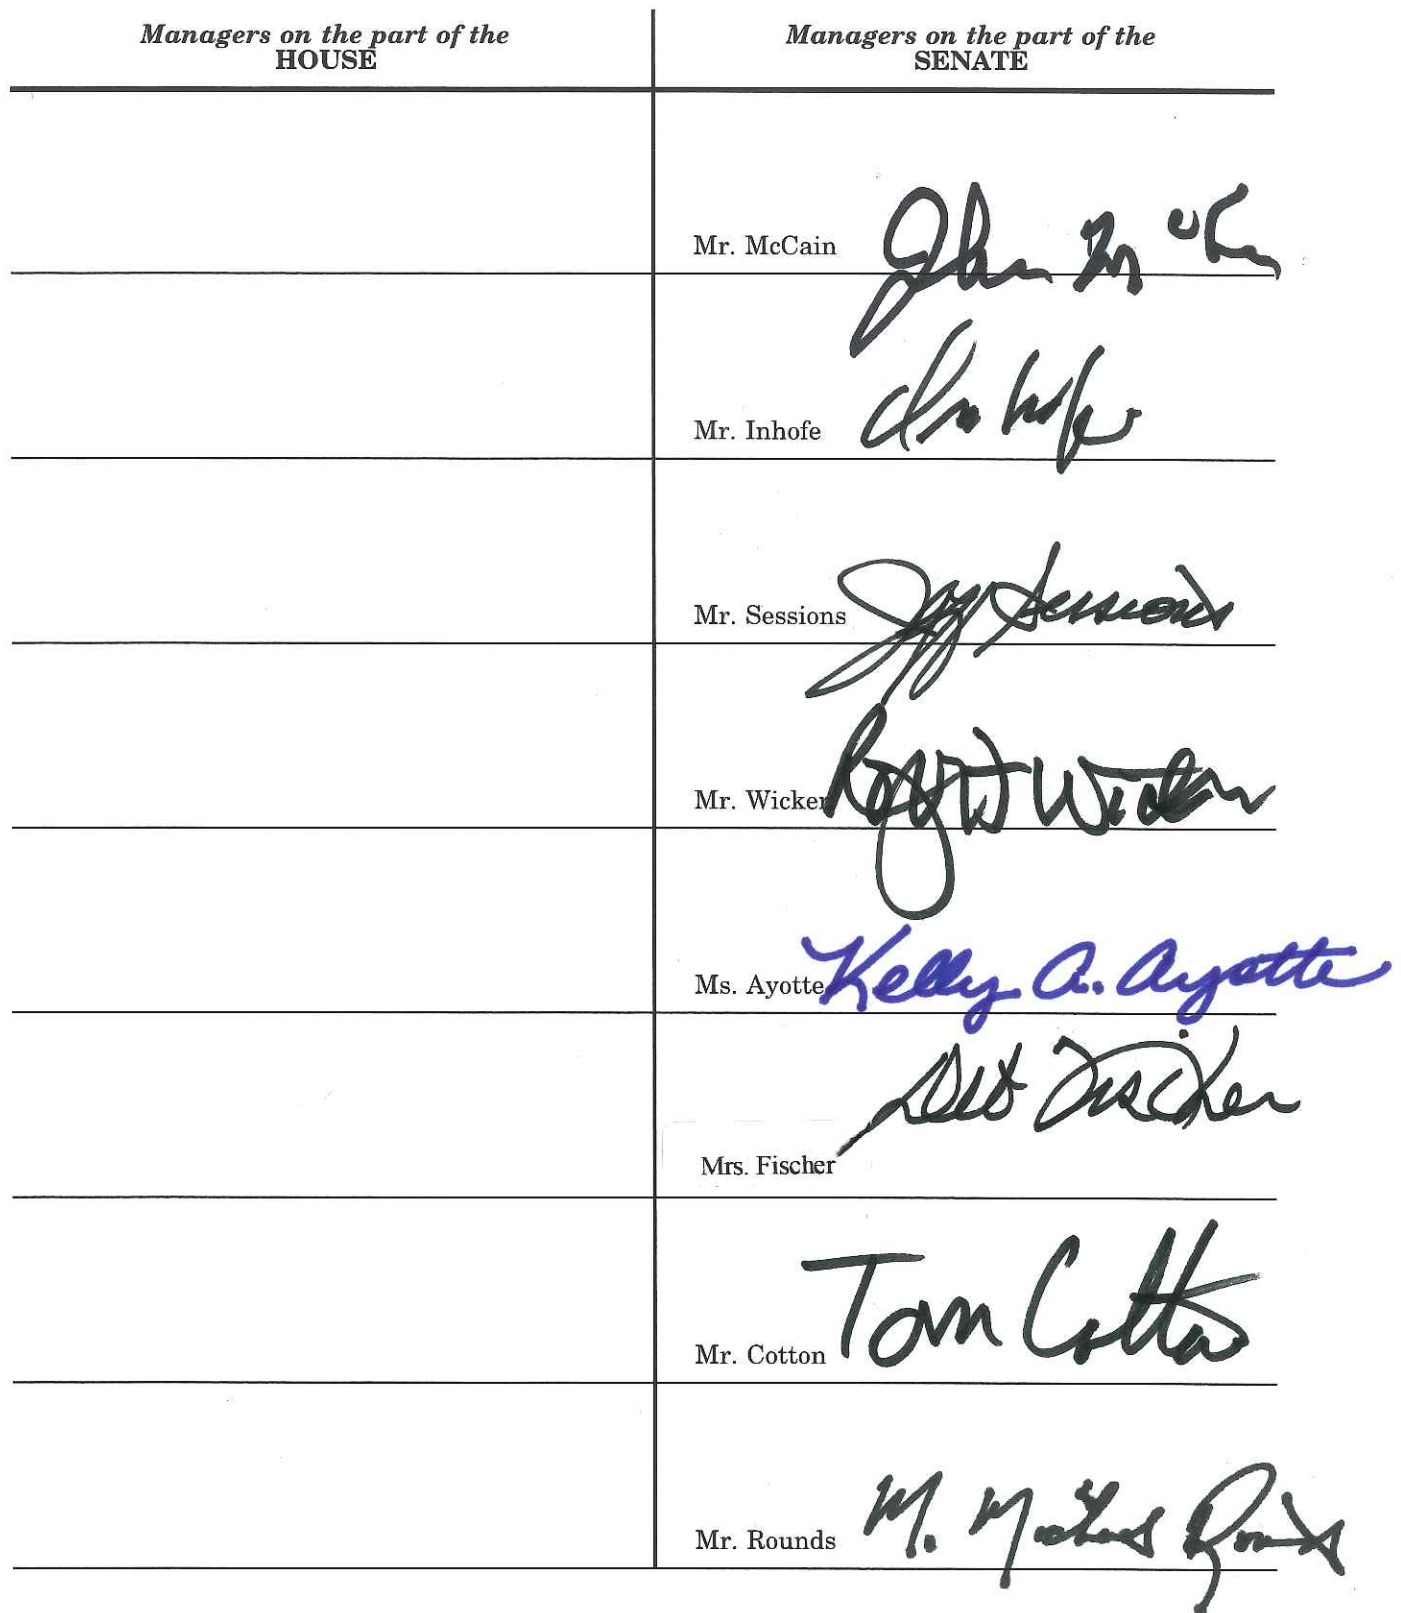 Managers on the part of the
HOUSE
Managers on the part of the
SENATE
Mr. McCain John McCain
Mr. Inhofe Inhofe
Mr. Sessions Jeff Sessions
Mr. Wicker Roger F Wicker
Ms. Ayotte Kelly A. Ayotte
Deb Fischer
Mrs. Fischer
Mr. Cotton Tom Cotton
Mr. Rounds M. Michael Rounds